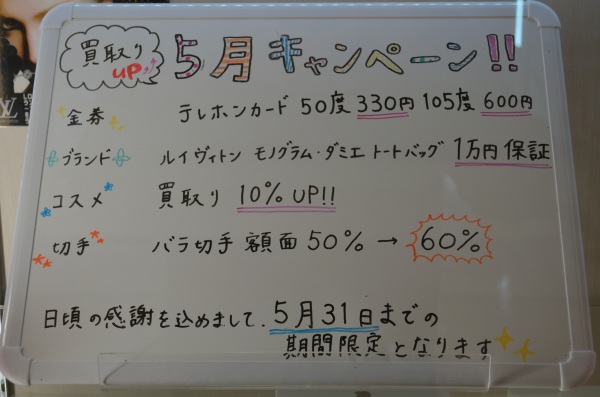 買取りUP
5月キャンペーン!!
金券 テレホンカード 50度 330円 105度 600円
ブランド ルイヴィトン モノグラム・ダミエ トートバッグ 1万円保証
コスメ 買取り 10% UP!!
切手 バラ切手 額面 50% → 60%
日頃の感謝を込めまして、5月31日までの
期間限定となります